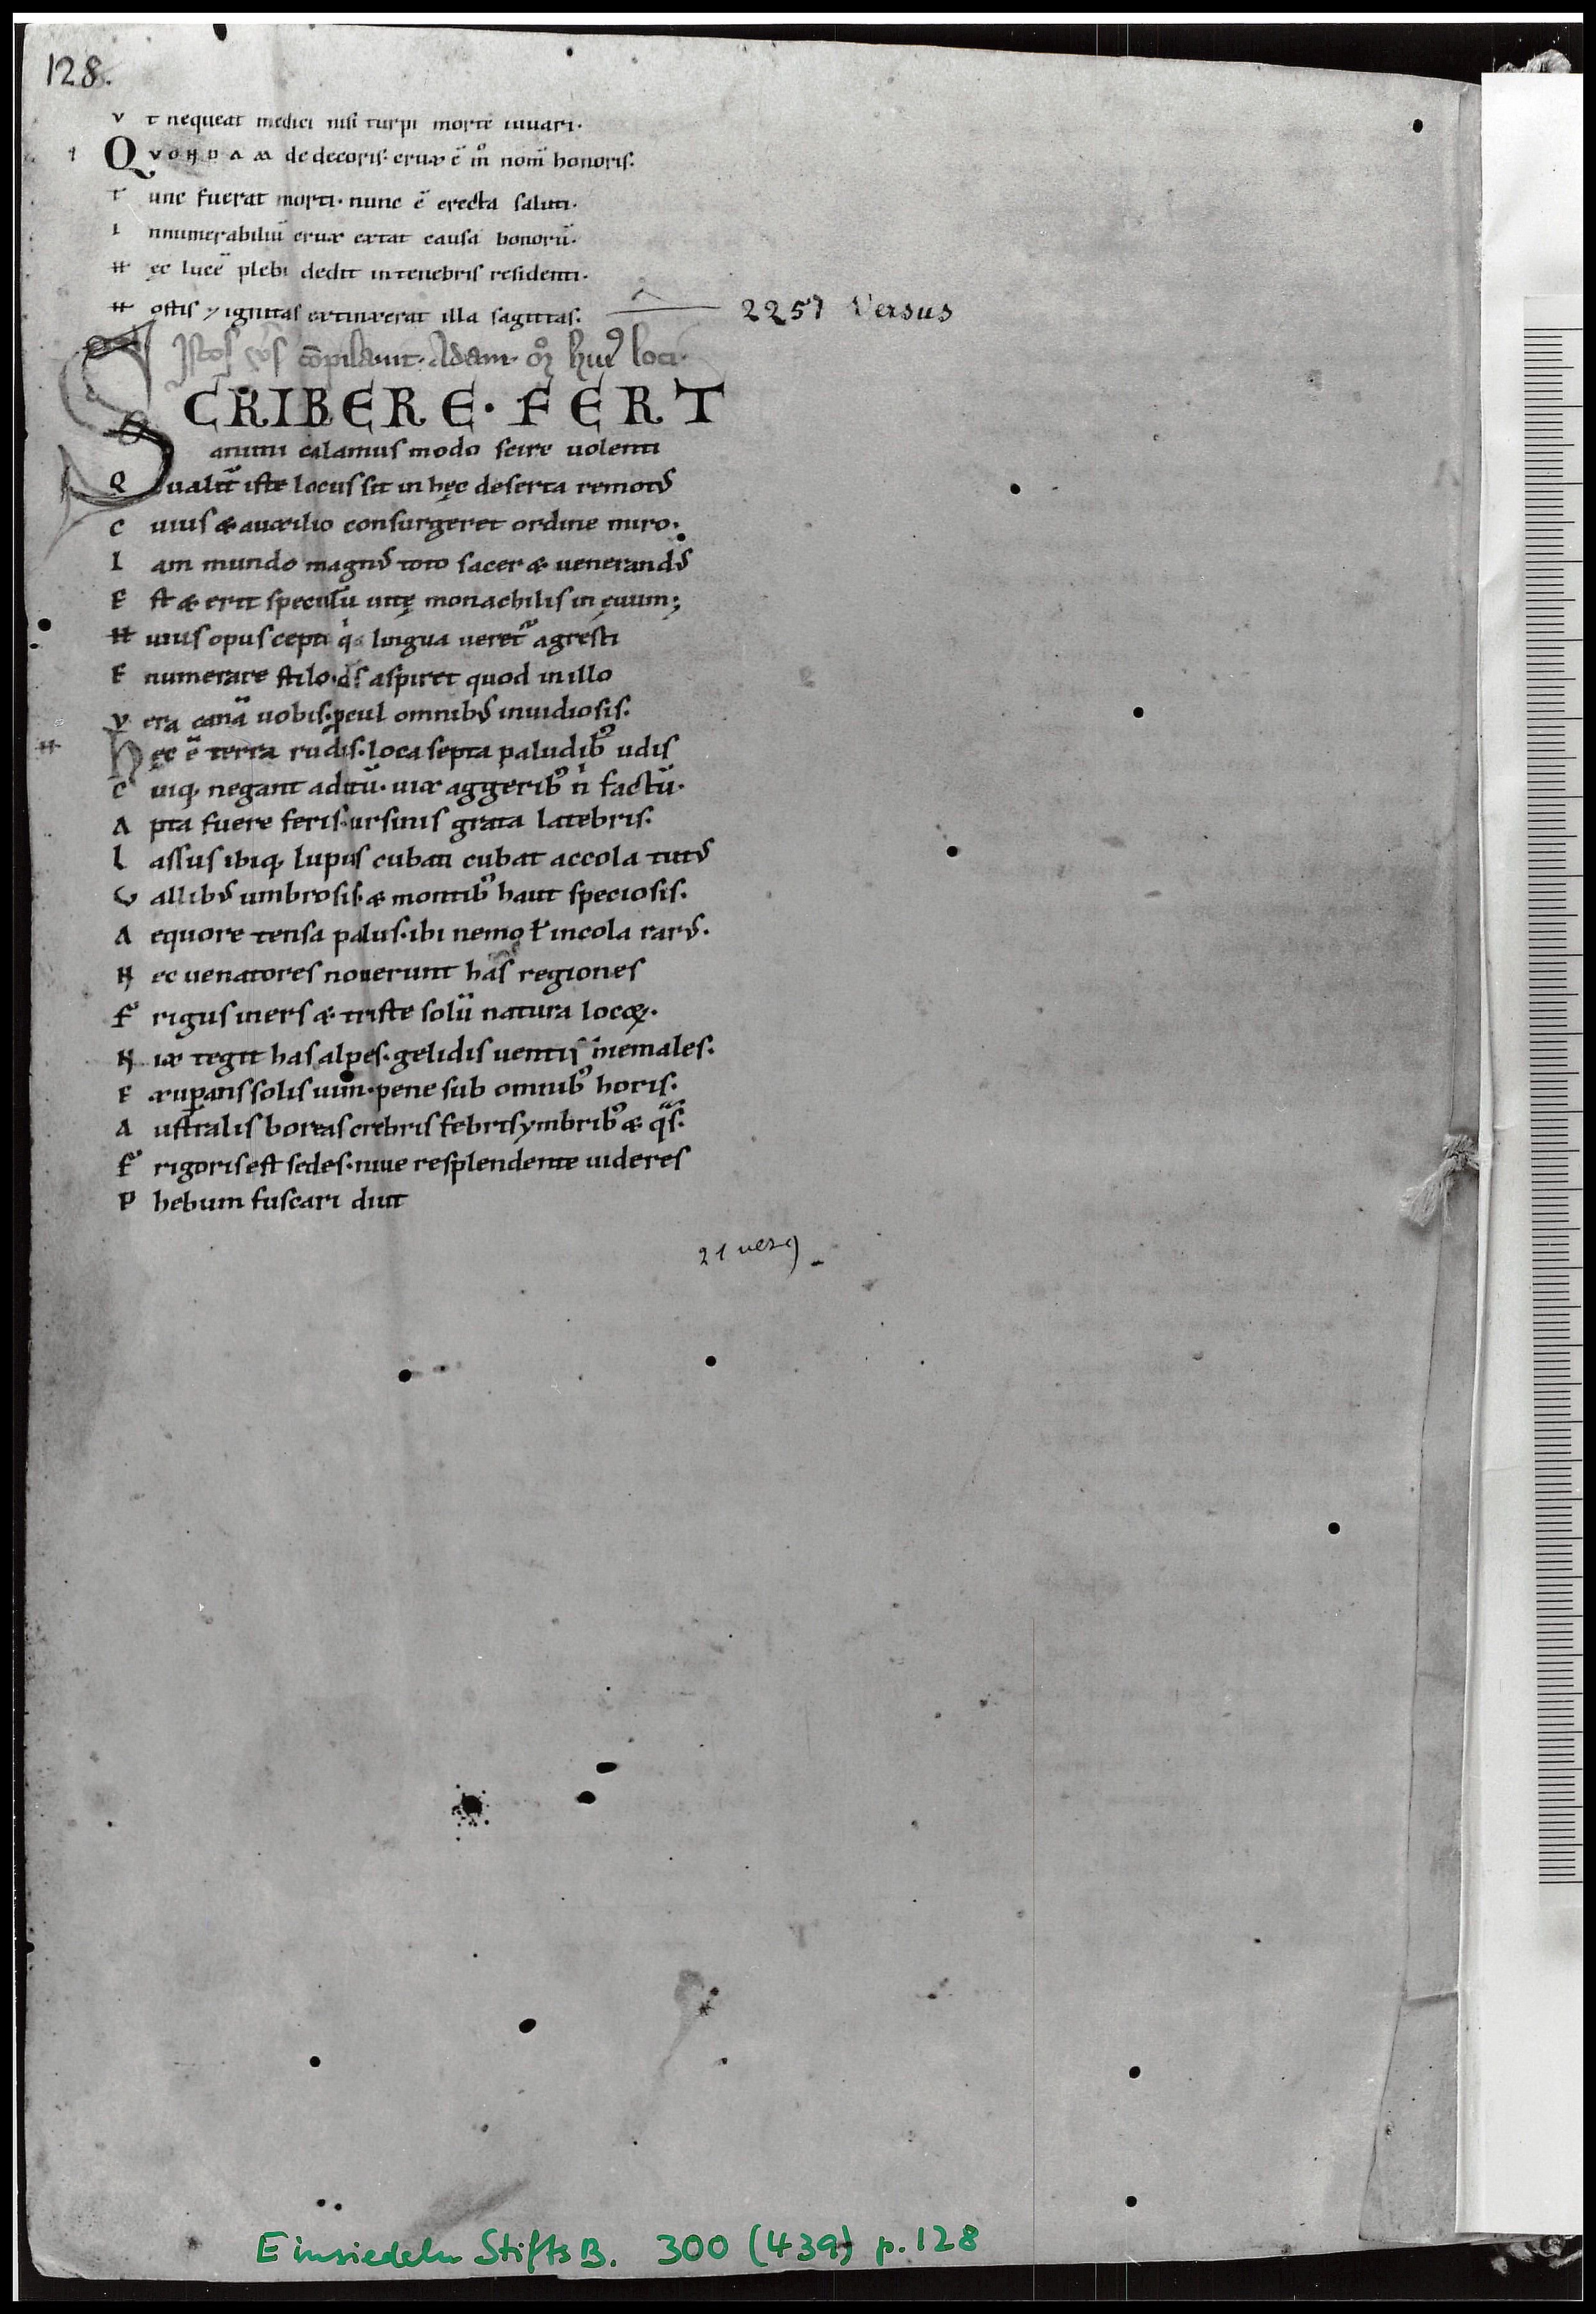 128.
Vt nequeat medici nisi turpi morte iuuari·
1 QVONDAM dedecoris· crux ē m̊ nom̄ honoris·
Tunc fuerat morti· nunc ē erecta saluti·
Innumerabiliū crux extat causa bonorū·
Hęc lucē plebi dedit in tenebris residenti·
Hostis & ignitas extinxerat illa sagittas· 2257 Versus
Istos v̄s cōpilauit· Adam· huiꝰ loci·
SCRIBERE· FERT
animi calamus modo scire uolenti
Qualit̄ iste locus sit in hęc deserta remotꝰ
Cuius & auxilio consurgeret ordine miro·
Iam mundo magnꝰ toto sacer & venerandꝰ
Est & erit speculū uitę monachilis in ęuum;
Huius opus cepti q̇ lingua ueretᷣ agresti
Enumerare stilo· ds̄ aspiret quod in illo
Vera canā uobis· ꝓcul omnibꝰ inuidiosis·
Hęc ē terra rudis· loca septa paludibꝰ udis
Cuiqꝫ negant aditū· uix aggeribꝰ n̄ factū·
Apta fuere feris· ursinis grata latebris·
Lassus ibiqꝫ lupus cubati cubat accola tutꝰ
Vallibꝰ umbrosis· & montibꝰ haut speciosis·
Aequore tensa palus· ibi nemo ł incola rarꝰ·
Nec uenatores nouerunt has regiones
Frigus iners & triste solū natura locoꝝ·
Nix tegit has alpes· gelidis uentis hiemales·
Exuꝑans solis uim· pene sub omnibꝰ horis·
Australis boreas crebris febris ymbribꝰ & q̄s̄·
Frigoris est sedes· niue resplendente uideres
Phebum fuscari diut
21 versꝰ
Einsiedeln StiftsB. 300 (439) p.128